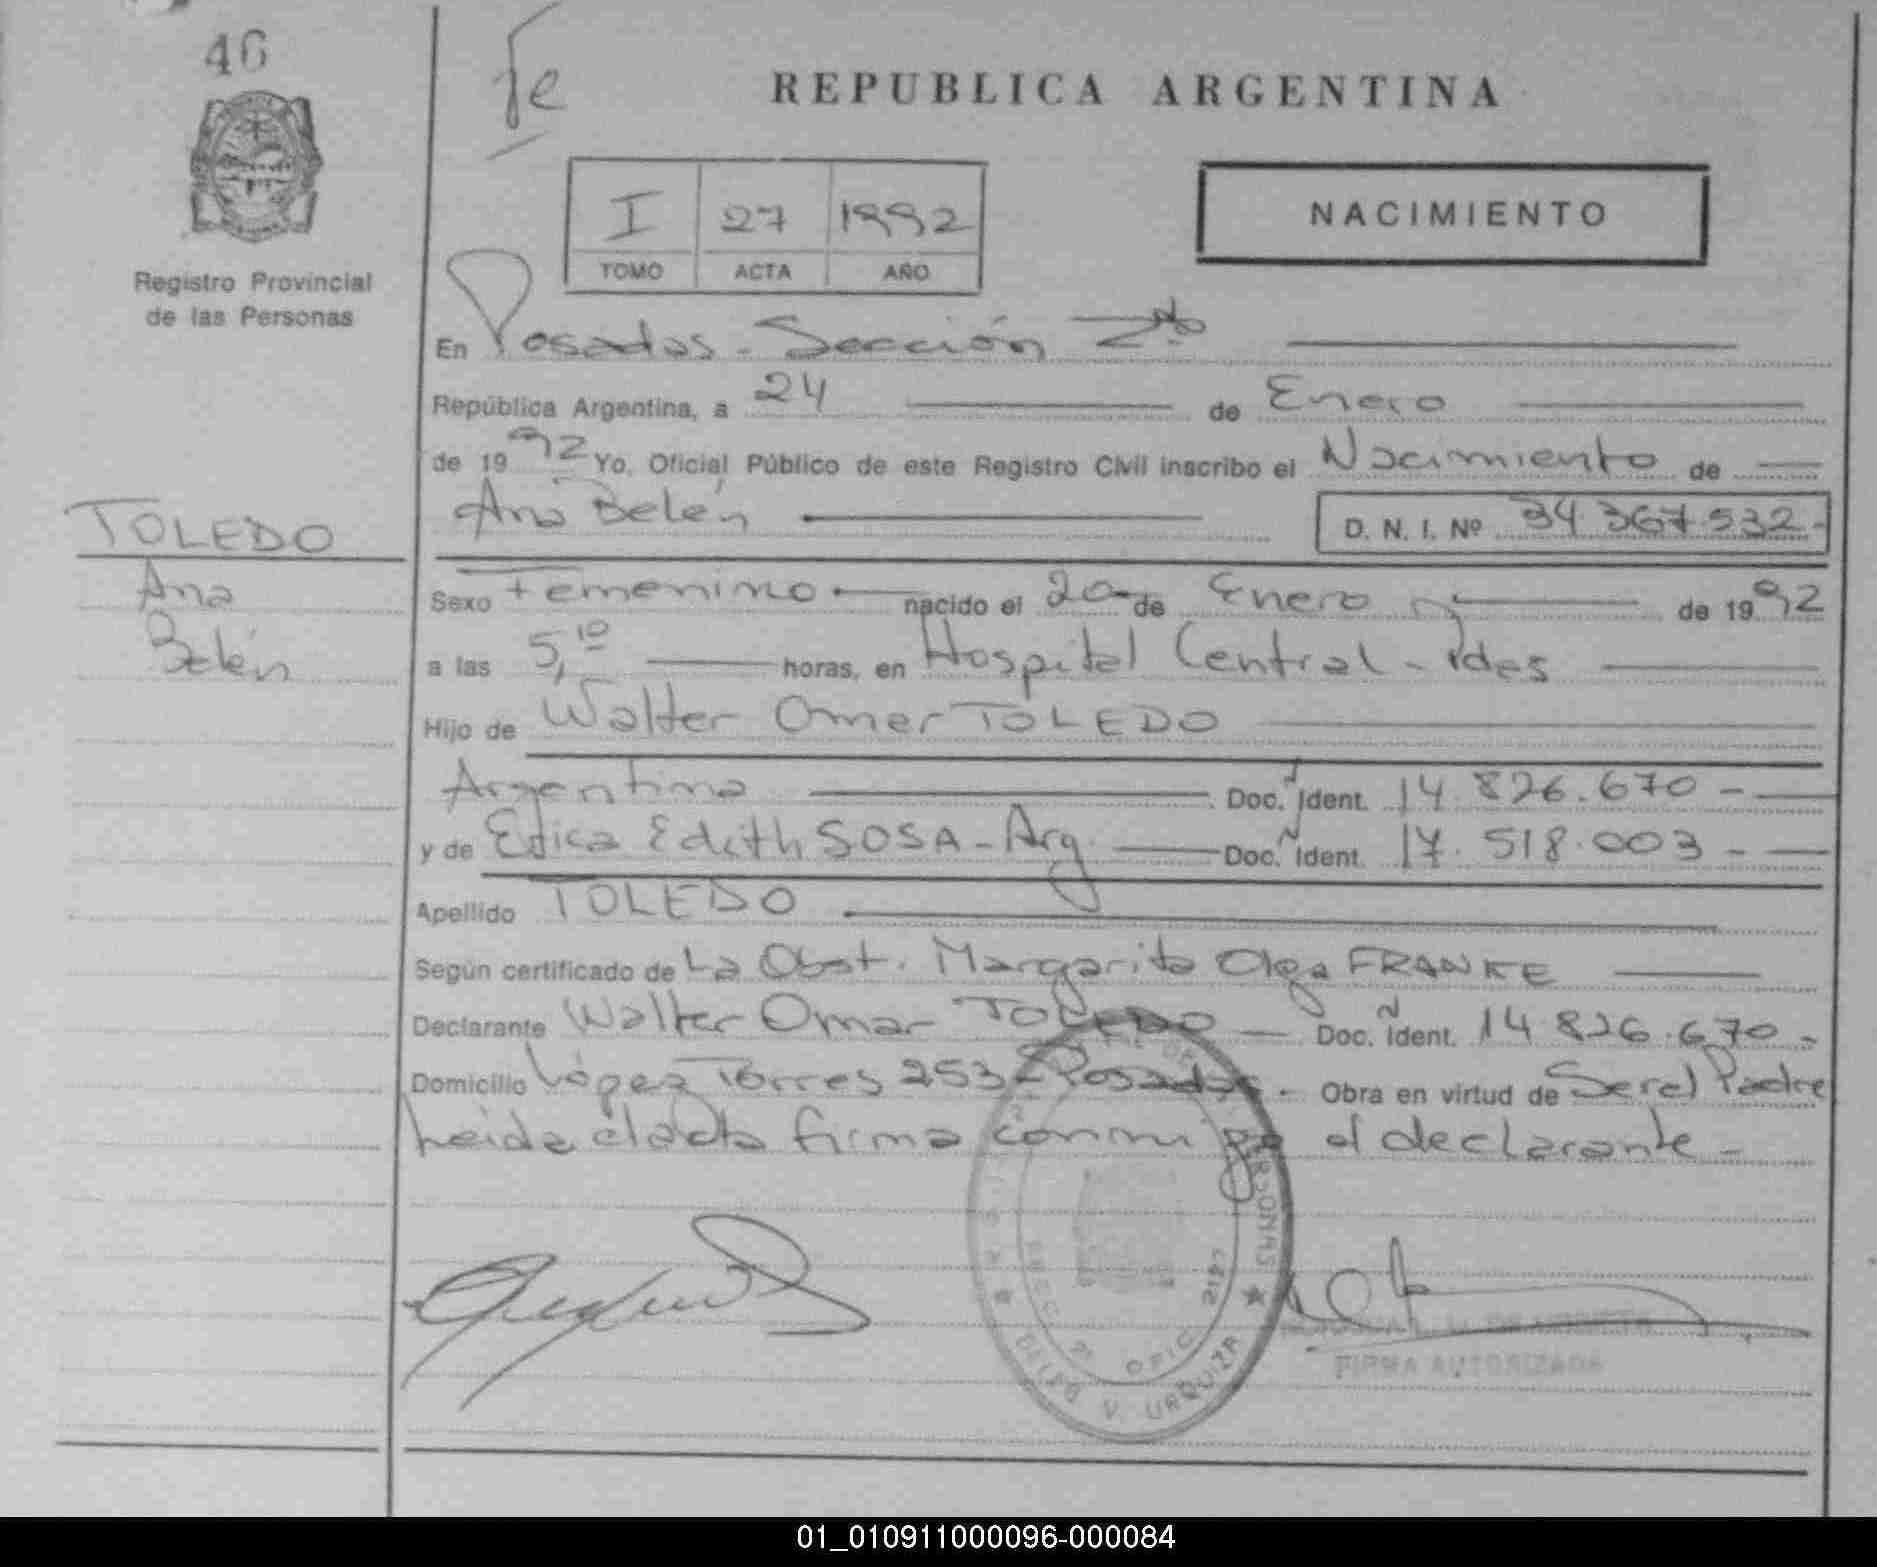 46
Fe
REPUBLICA ARGENTINA
I 27 1992
TOMO ACTA AÑO
NACIMIENTO
Registro Provincial
de las Personas
En Posadas - Sección 2da
República Argentina, a 24 de Enero
de 1992 Yo, Oficial Público de este Registro Civil inscribo el Nacimiento de
Ana Belén D. N. I. Nº 34.367.532.-
TOLEDO
Ana
Belén
Sexo Femenino nacido el 20 de Enero de 1992
a las 5,10 horas, en Hospital Central - Pdas
Hijo de Walter Omar TOLEDO
Argentino Doc. Ident. 14.826.670 -
y de Erica Edith SOSA - Arg. Doc. Ident. 17.518.003 -
Apellido TOLEDO
Según certificado de La Obst. Margarita Olga FRANKE
Declarante Walter Omar TOLEDO Doc. Ident. 14.826.670.-
Domicilio López Torres 253 - Posadas. - Obra en virtud de Ser el Padre
Leida el acta firma conmigo el declarante -
PERSONAS
SECC. 2ª OFIC.
DELEG V. URQUIZA
FIRMA AUTORIZADA
01_010911000096-000084